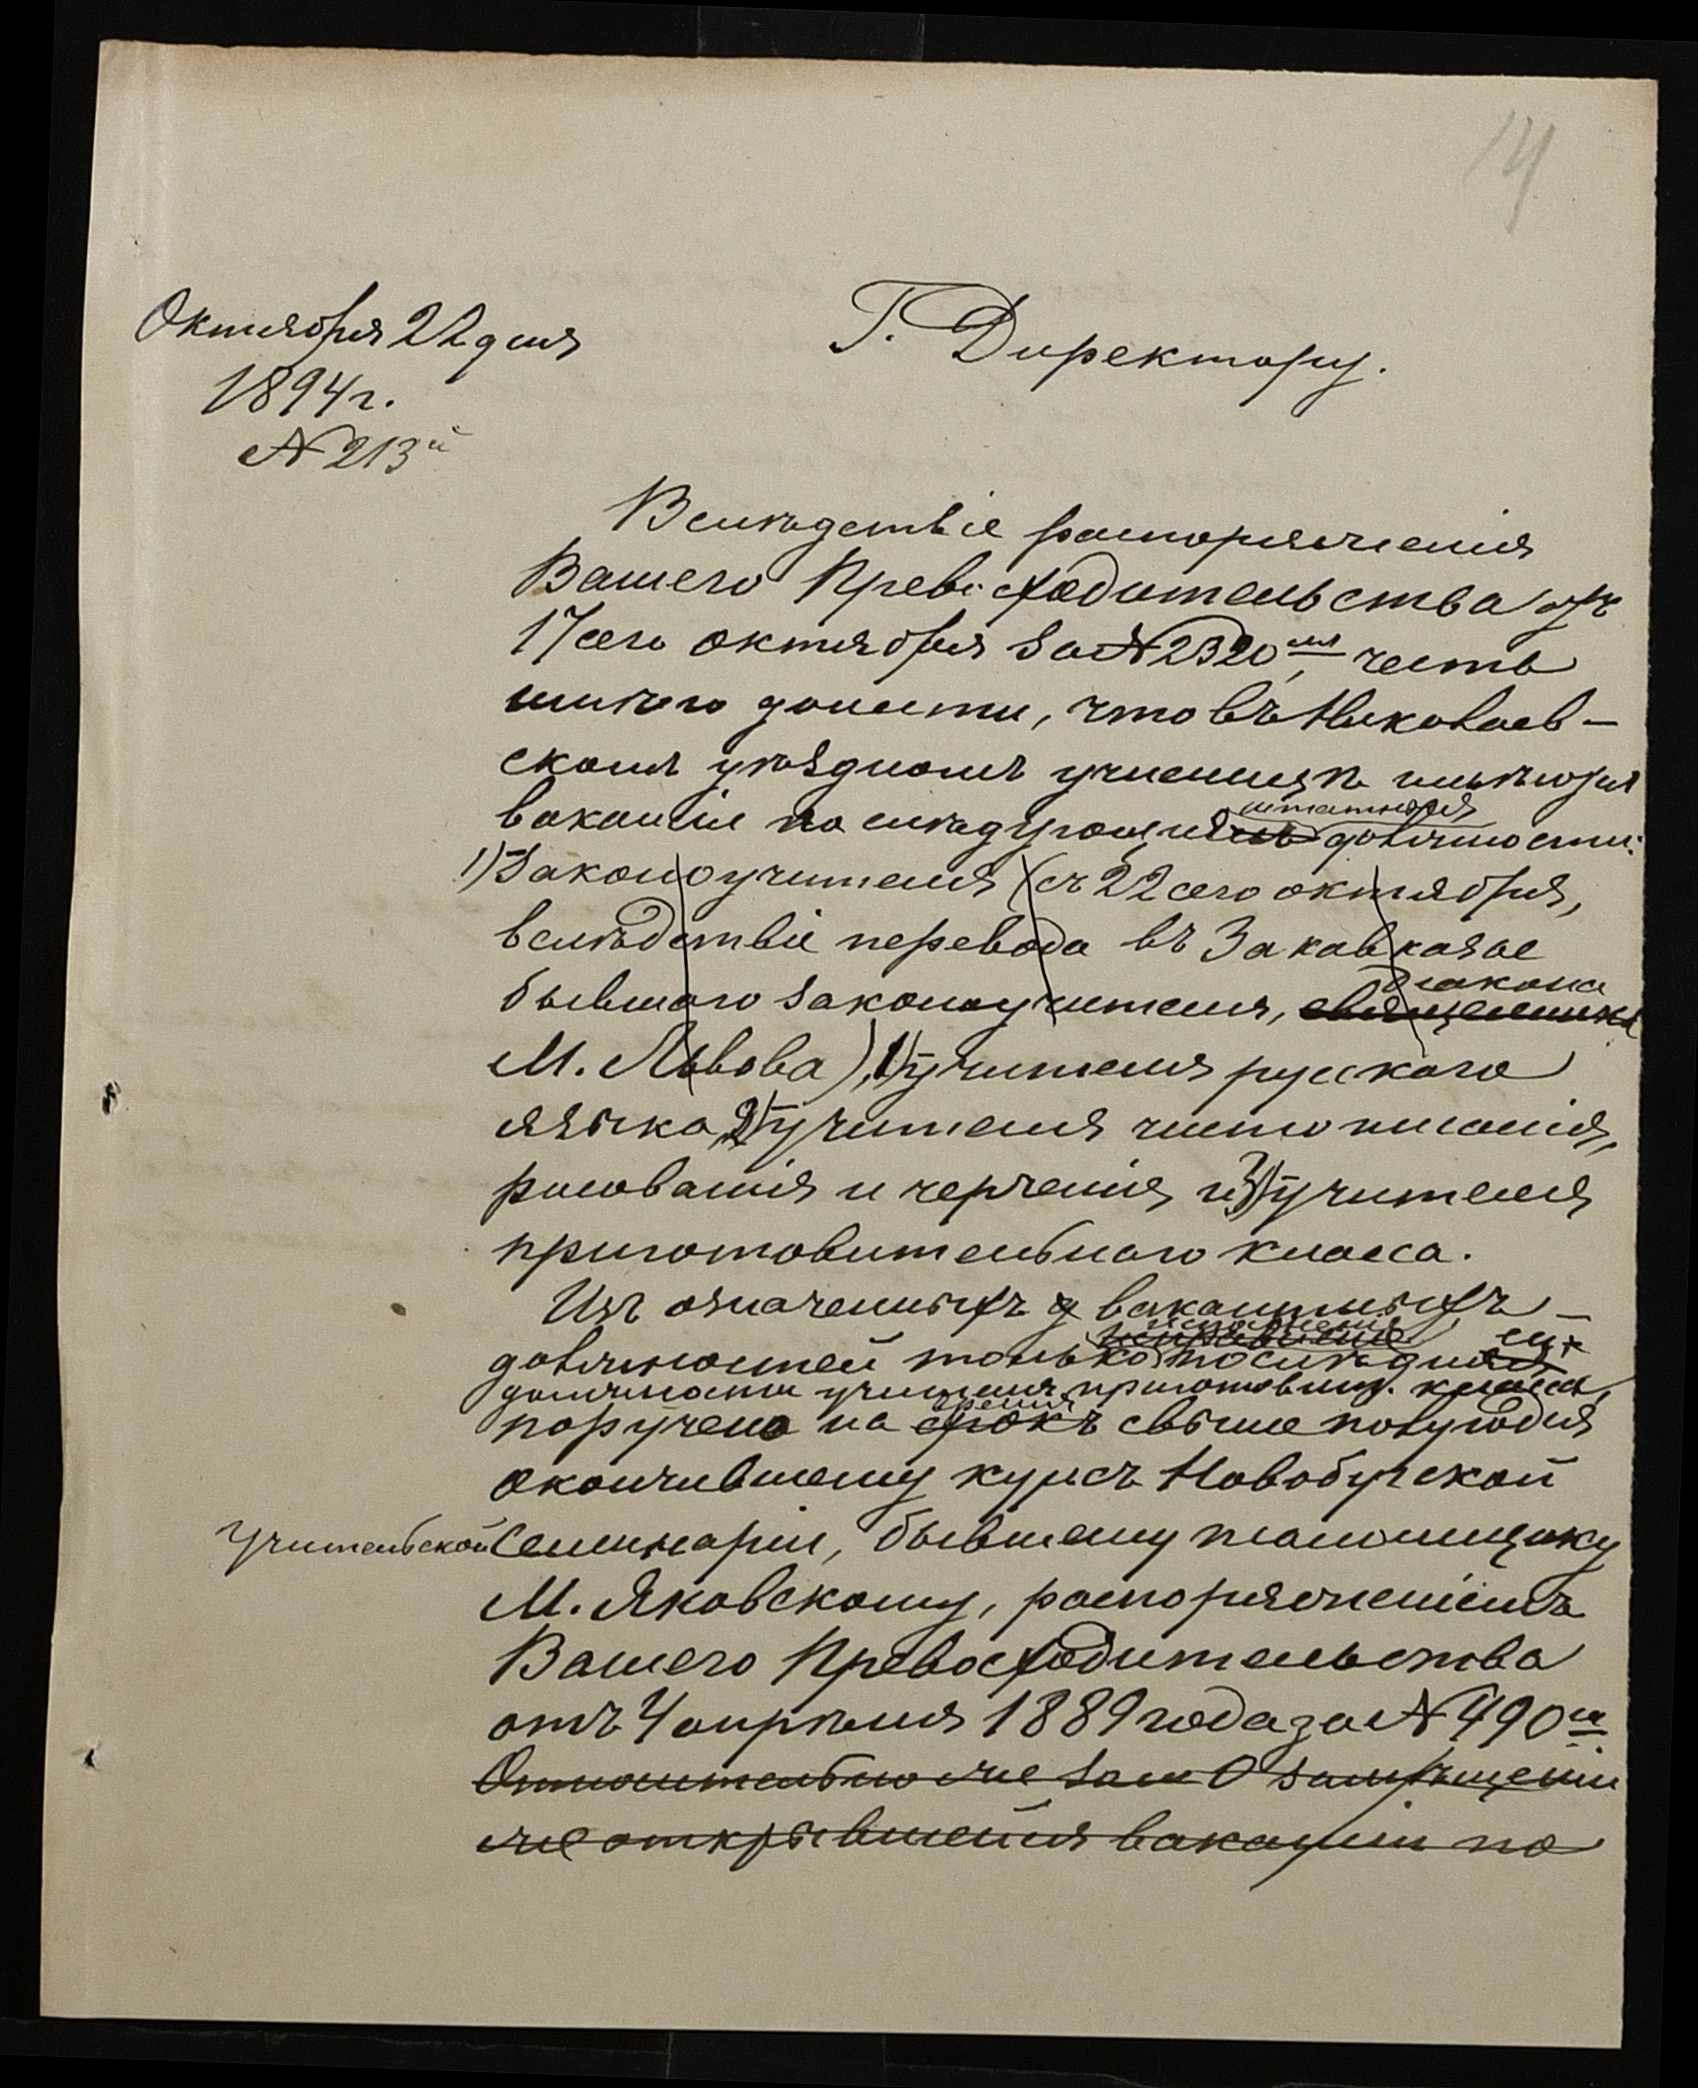 14
Октября 22 дня
1894 г.
№ 213й
Г. Директору.
Вслѣдствіе распоряженія
Вашего Превосходительства отъ
17 сего октября за № 2320мъ, честь
имѣю донести, что въ Николаев-
скомъ уѣздномъ училищѣ имѣются
штатныя
вакансіи на слѣдующія должности:
1) Законоучителя (съ 22 сего октября,
вслѣдствіе перевода въ Закавказье
діакона
бывшаго законоучителя, священника
М. Львова), 1) учителя русскаго
языка, 2) учителя чистописанія,
рисованія и черченія и 3) учителя
приготовительнаго класса.
Изъ означенныхъ вакантныхъ
исполненіе
должностей только послѣдней
должности учителя приготовит. класса,
время
поручено на срокъ свыше полугодія
окончившему курсъ Новобугской
Учительской Семинаріи, бывшему
М. Яковскому, распоряженіемъ
Вашего Превосходительства
отъ 4 апрѣля 1889 года за № 490мъ
Относительно же зам О замѣщеніи
же открывшейся вакансіи по